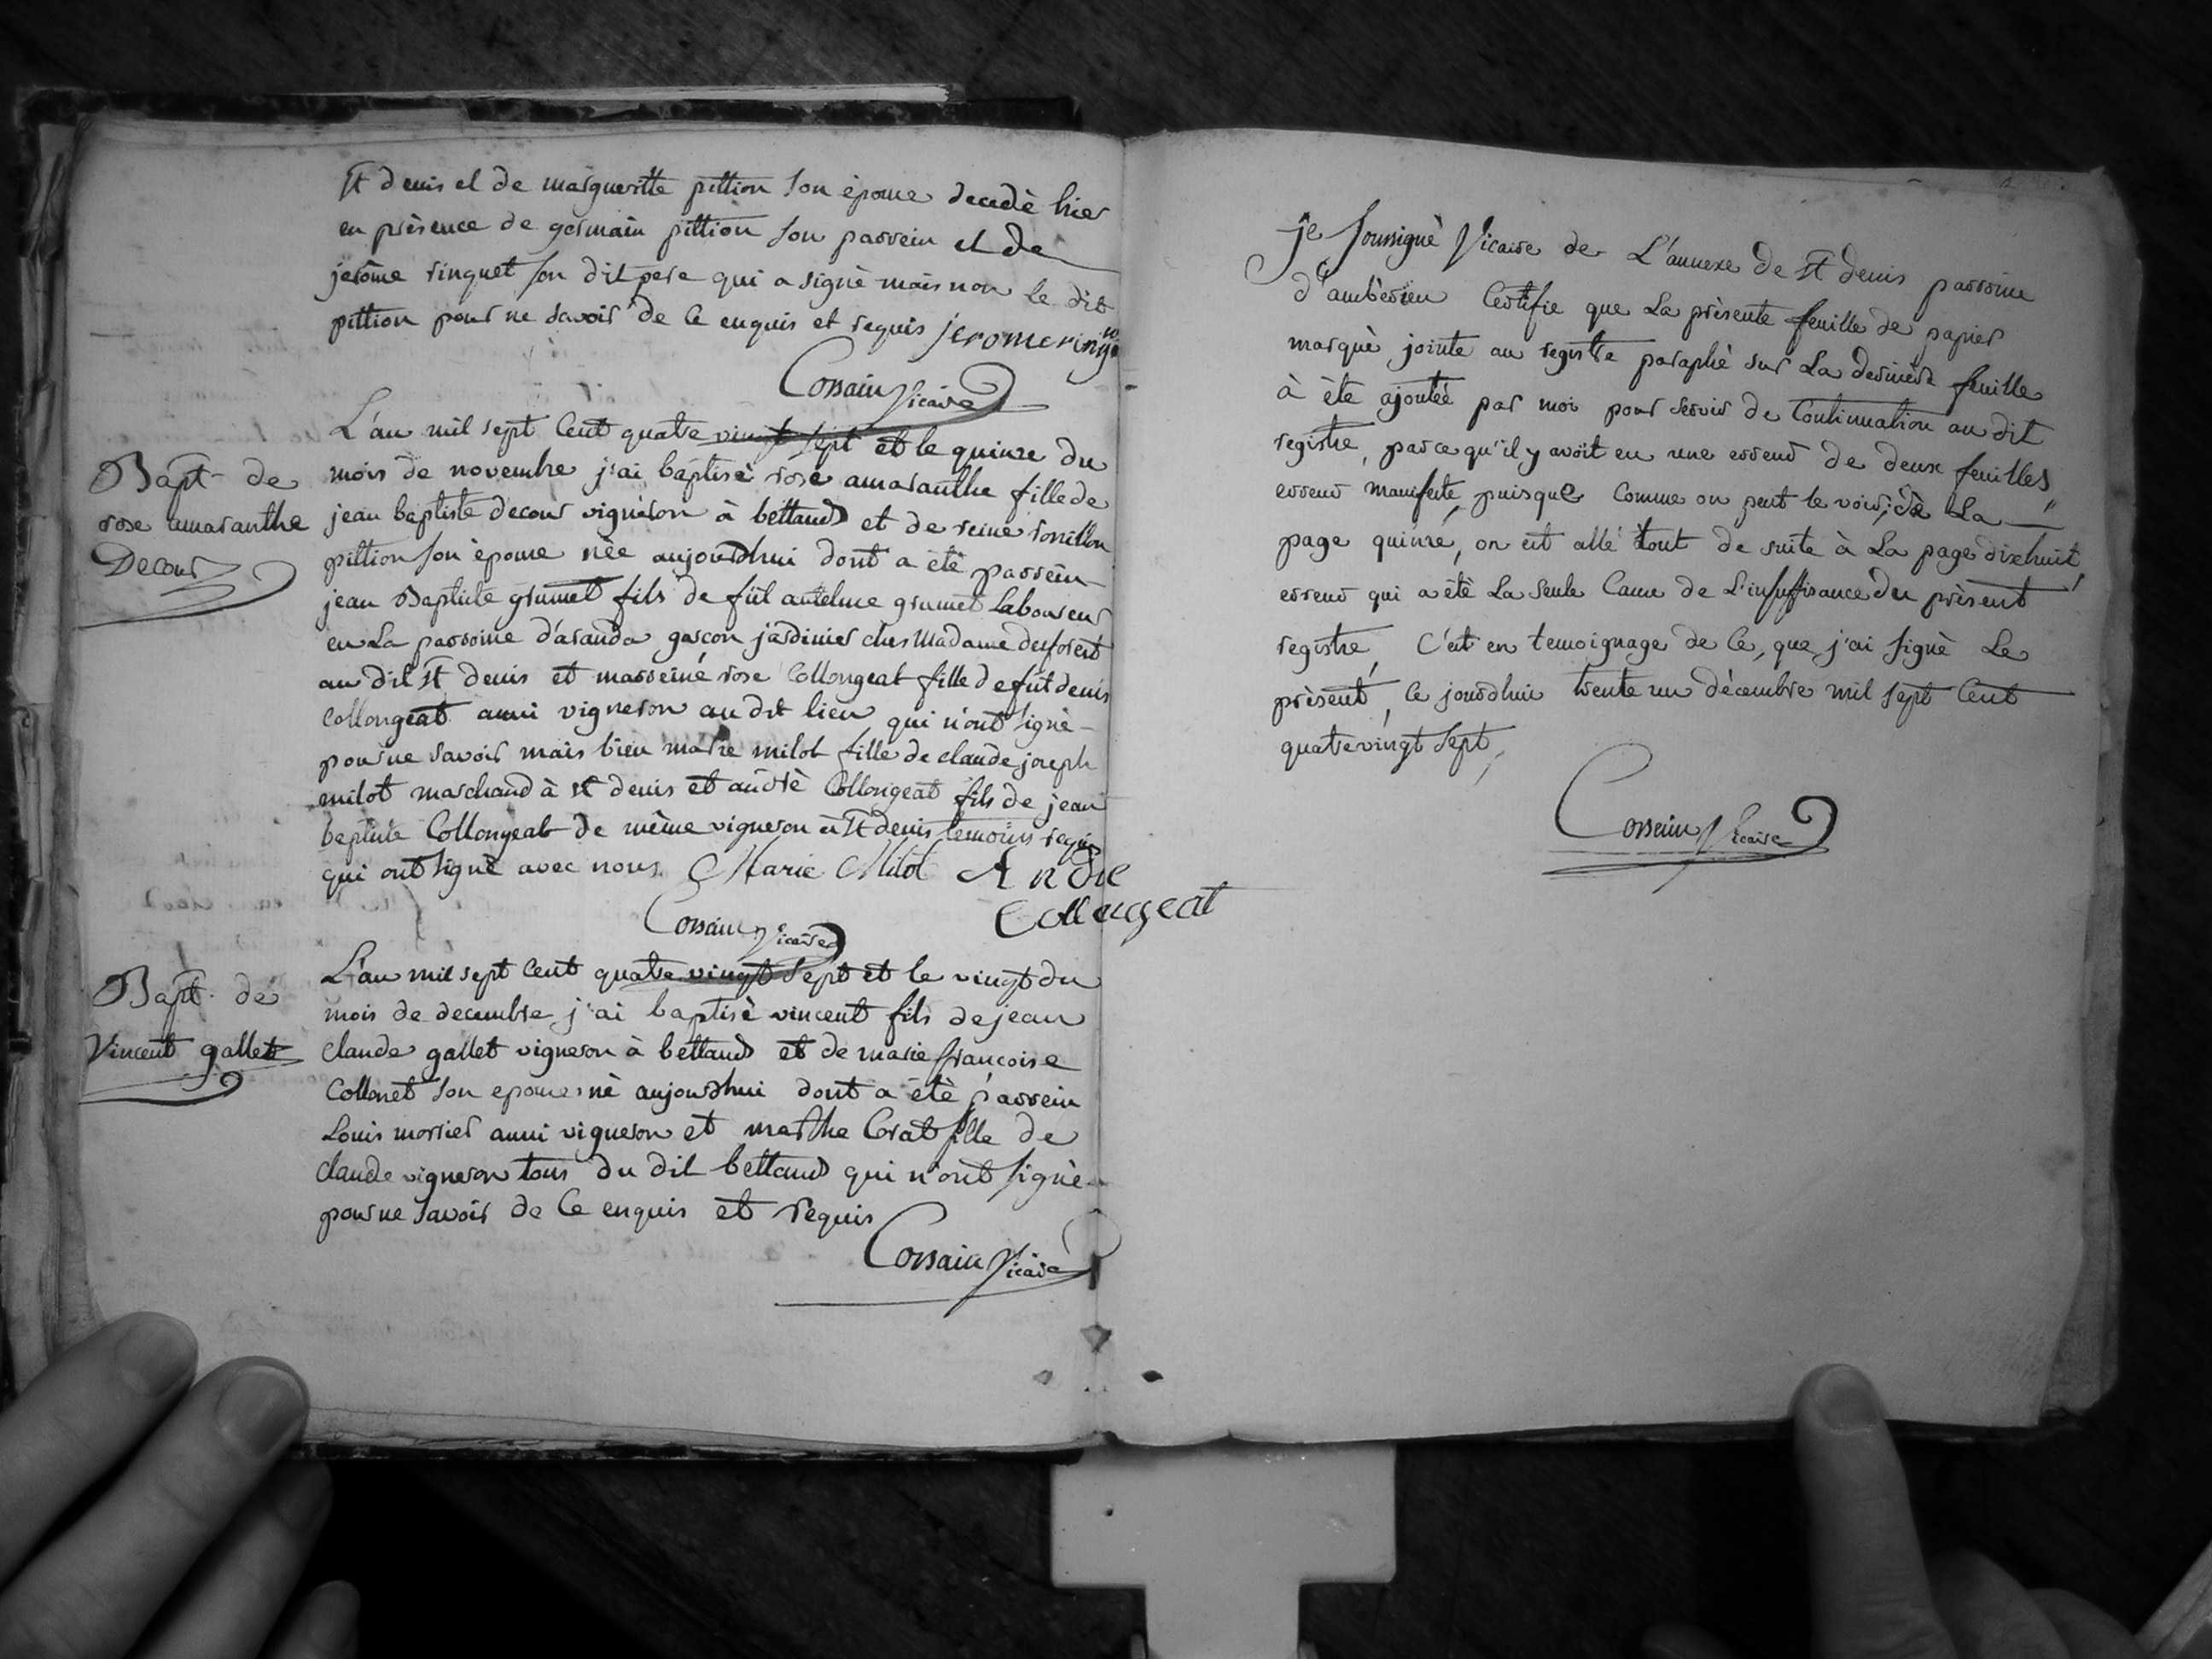 St denis et de margueritte pittion son épouse decedè hier
en présence de germain pittion son parrein et de
jerôme ringuet son dit pere qui a signè mais non le dit
pittion pour ne savoir de ce enquis et requis jerome ringuet
Corsain Vicaire
Bapt. de
rose amaranthe
Decour
L'an mil sept cent quatre vingt sept et le quinze du
mois de novembre j'ai baptisè rose amaranthe fille de
jean baptiste decour vigneron à bettand et de reine
pittion son èpouse nèe aujourdhui dont a étè parrein
jean Baptiste grumet fils de fût antelme grumet Laboureur
en La parroisse d'aranda garcon jardinier ches Madame desforest
au dit St denis et marreine rose Collongeat fille de fût denis
Collongeat aussi vigneron au dit lieu qui n'ont signè
pour ne savoir mais bien marie milot fille de claude joseph
milot marchand à St denis et andrè Collongeat fils de jean
baptiste Collongeat de même vigneron à St denis temoins requis
qui ont signè avec nous. Marie Milot Andre
Collongeat
Corsain Vicaire
Bapt. de
Vincent gallet
L'an mil sept cent quatre vingt sept et le vingt du
mois de decembre j'ai baptisè vincent fils de jean
claude gallet vigneron à bettand et de marie francoise
Collonet son epouse nè aujourdhui dont a étè parrein
Louis morrier aussi vigneron et marthe Corat fille de
claude vigneron tous du dit bettand qui n'ont signè
pour ne savoir de ce enquis et requis
Corsain Vicaire
je soussignè Vicaire de L'annexe de St denis parroisse
d'ambèrieu Certifie que La prèsente feuille de papier
marquè jointe au registre paraphè sur La dernière feuille
à ète ajoutèe par moi pour servir de Continuation au dit
registre, parce qu'il y avoit eu une erreur de deux feuilles
erreur manifeste, puisque comme on peut le voir, de La
page quinze, on est allé tout de suite à La page dixhuit,
erreur qui a étè La seule Cause de L'insuffisance du prèsent
registre, C'est en temoignage de ce, que j'ai signè Le
prèsent, ce jourdhui trente un dècembre mil sept cent
quatre vingt sept,
Corsain Vicaire